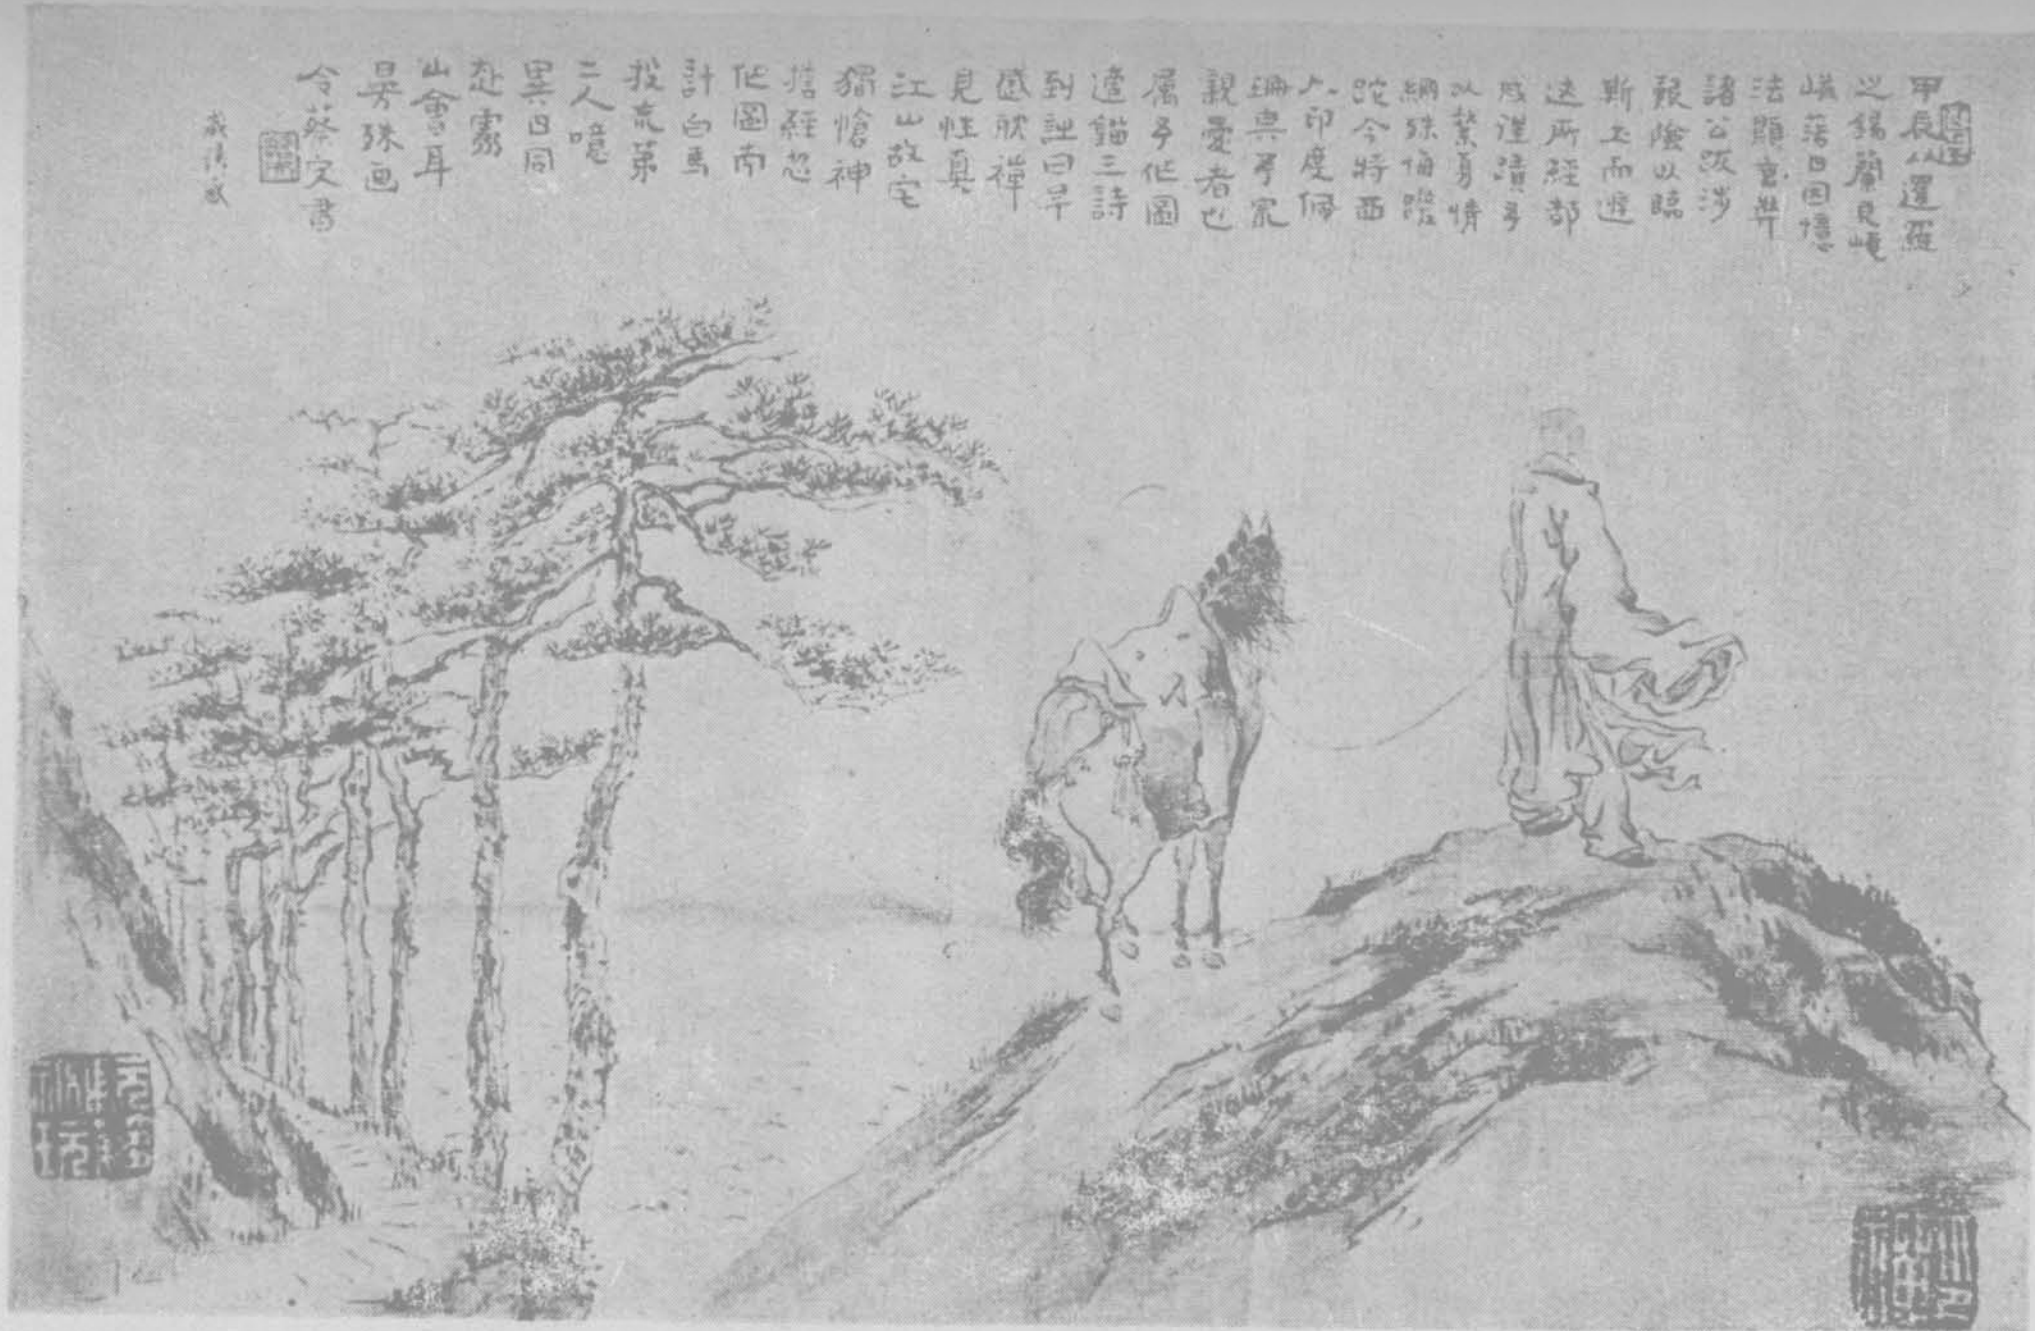 甲辰从暹羅
之錫蘭見崦
嵫落日因憶
法顯玄奘
諸公跋涉
艱險以臨
斯土而遊
迹所經都
成蹟予
以縶身情
網殊悔蹉
跎今將西
入印度佩
珊與予最
親愛者也
屬予作圖
適劉三詩
到詩曰早
歲耽禪
見性真
江山故宅
獨愴神
擔經忽
作圖南
計白馬
投荒第
二人噫
異日同
赴靈
山會耳
曼殊画
令蔡守書